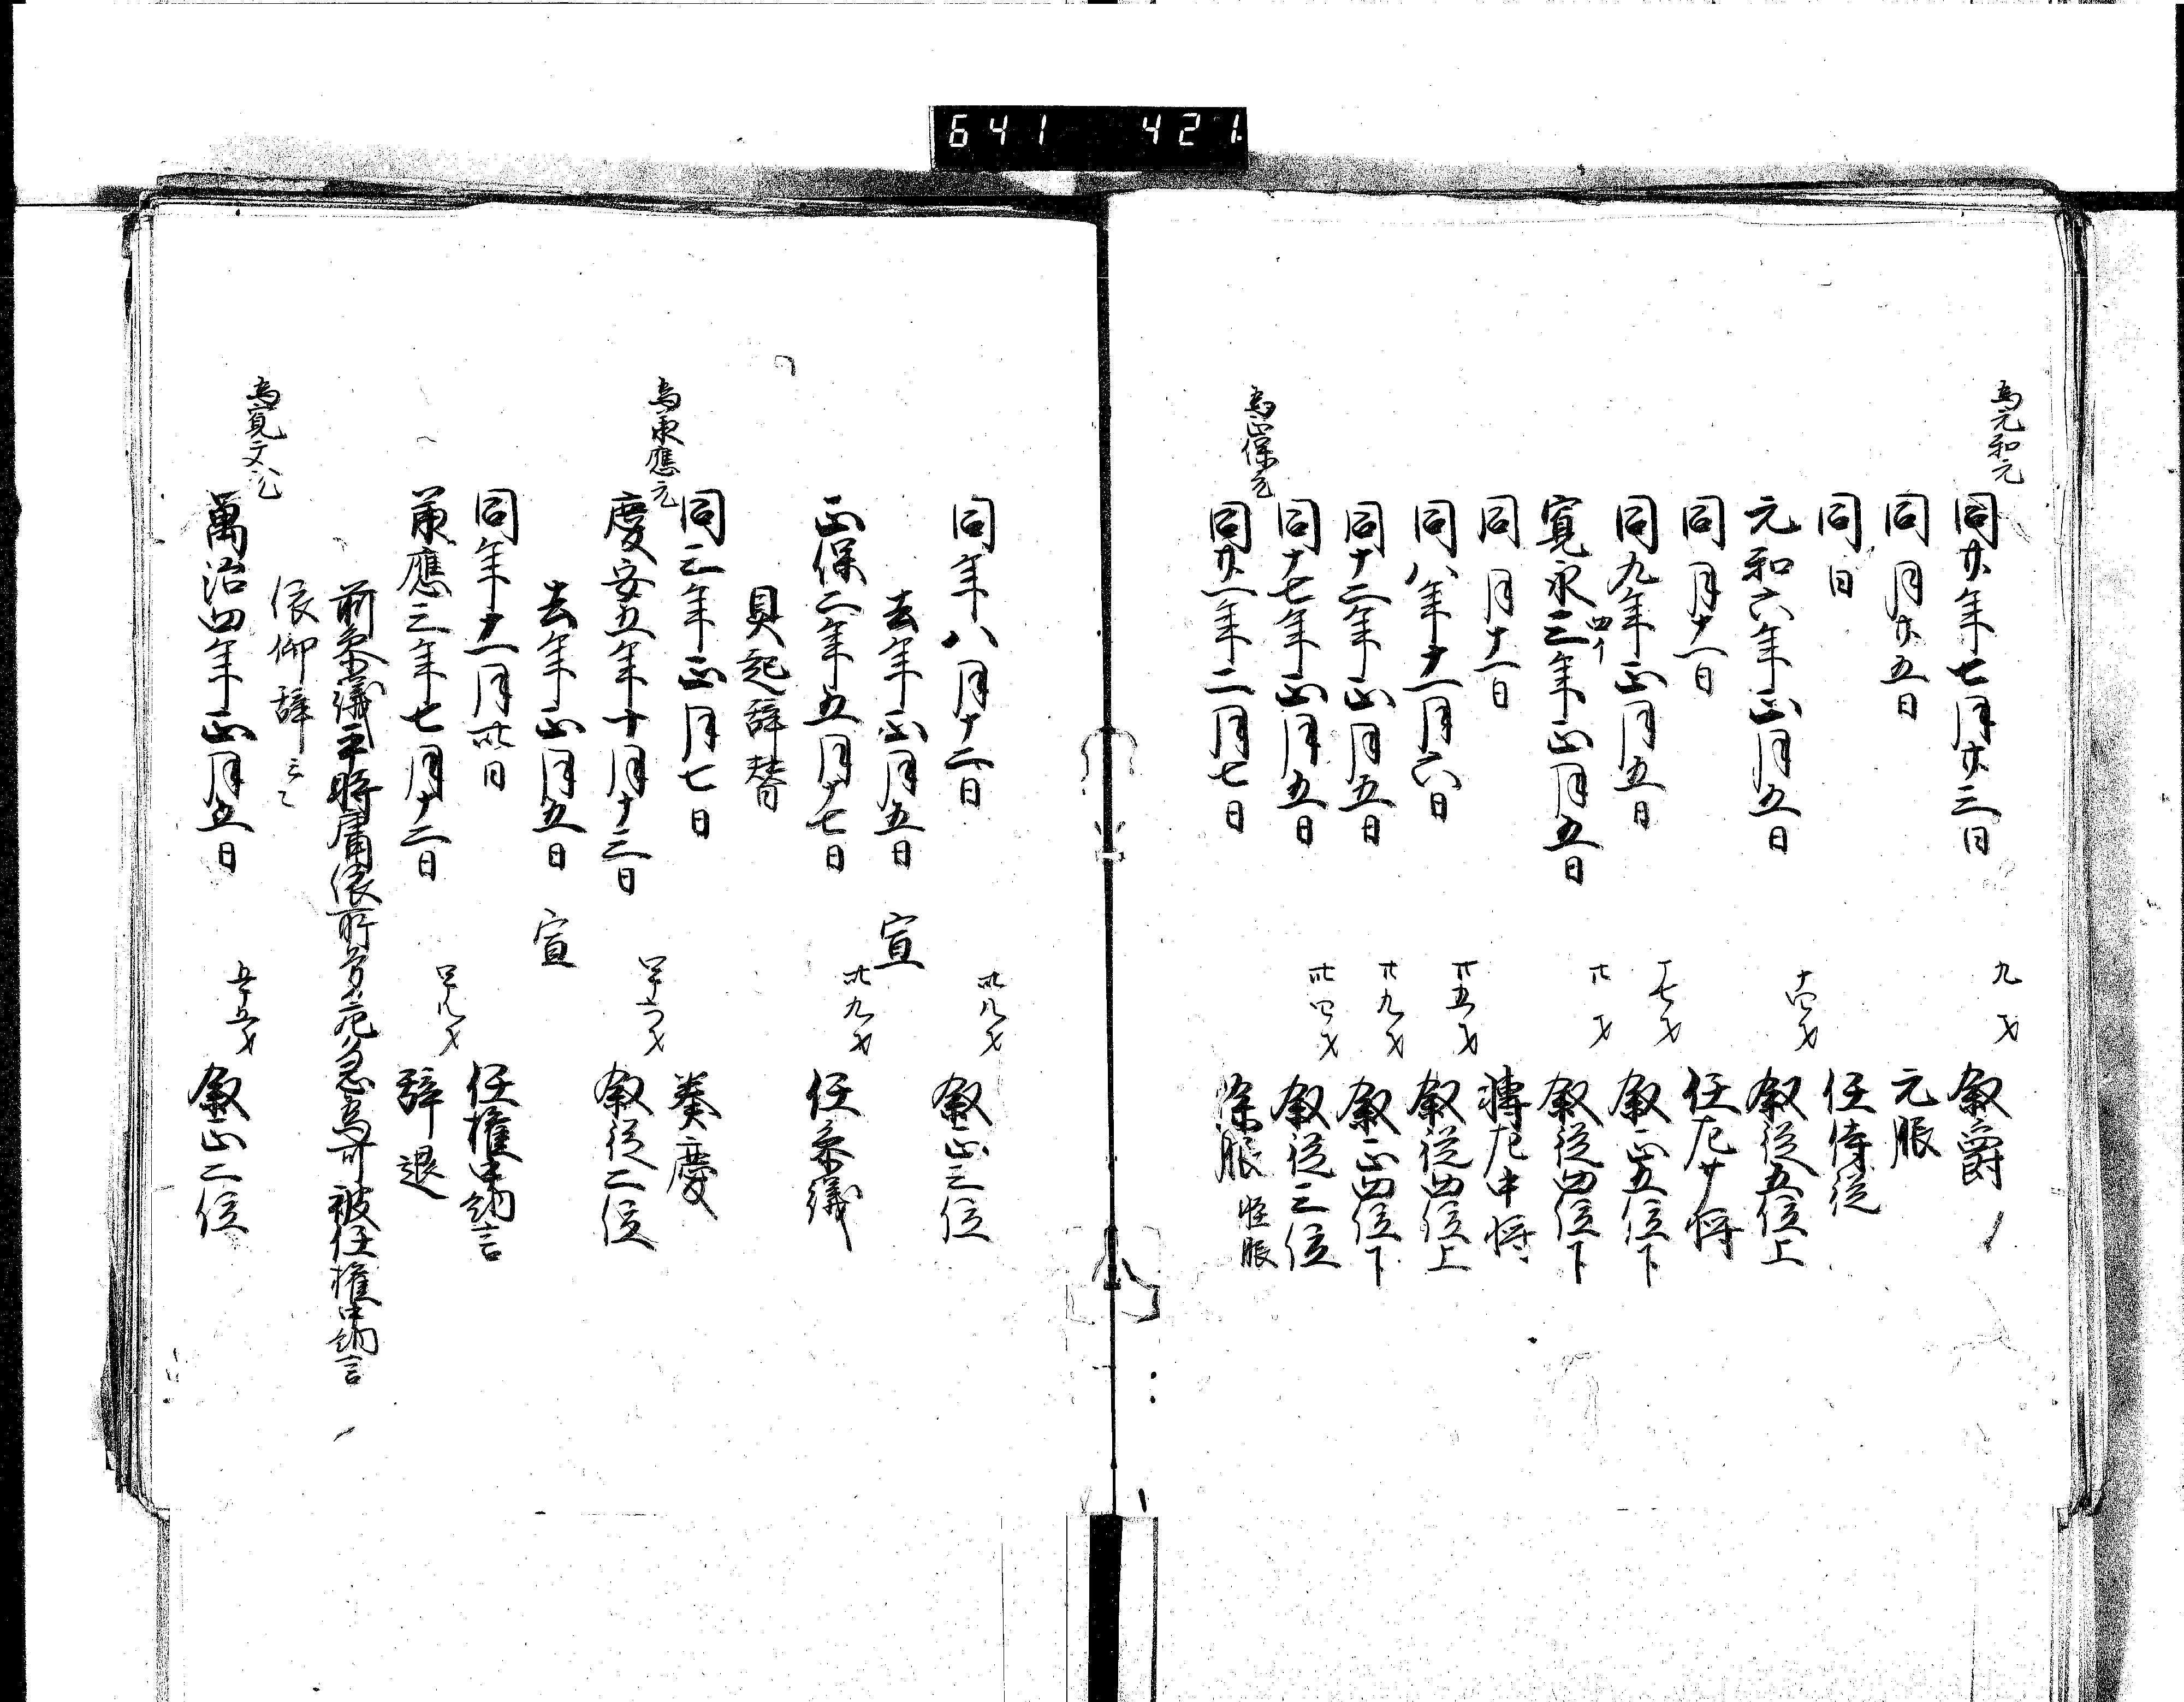 641 421
為元和元
同廿年七月廿三日 九才 叙爵
同月廿五日 元服
同日 任侍従
元和六年正月五日 十四才 叙従五位上
同月十一日 任左少将
同九年正月五日 十七才 叙正五位下
寛永三年正月五日 廿才 叙従四位下
四イ
同月十一日 轉左中将
同八年十一月六日 廿五才 叙従四位上
同十二年正月五日 廿九才 叙正四位下
同十七年正月五日 卅四才 叙従三位
為正保元
同廿一年二月七日 除服
同年八月十二日 卅八才 叙正三位
去年正月五日 宣
正保二年五月十七日 卅九才 任参議
具起辞替
同三年正月七日 奏慶
為承應元
慶安五年十月十三日 四十六才 叙従二位
去年正月五日 宣
同年十一月卅日 任権中納言
承應三年七月十二日 四十八才 辞退
前参議平時庸依所労危急為可被任権中納言
依仰辞云々
為寛文元
萬治四年正月五日 五十五才 叙正二位